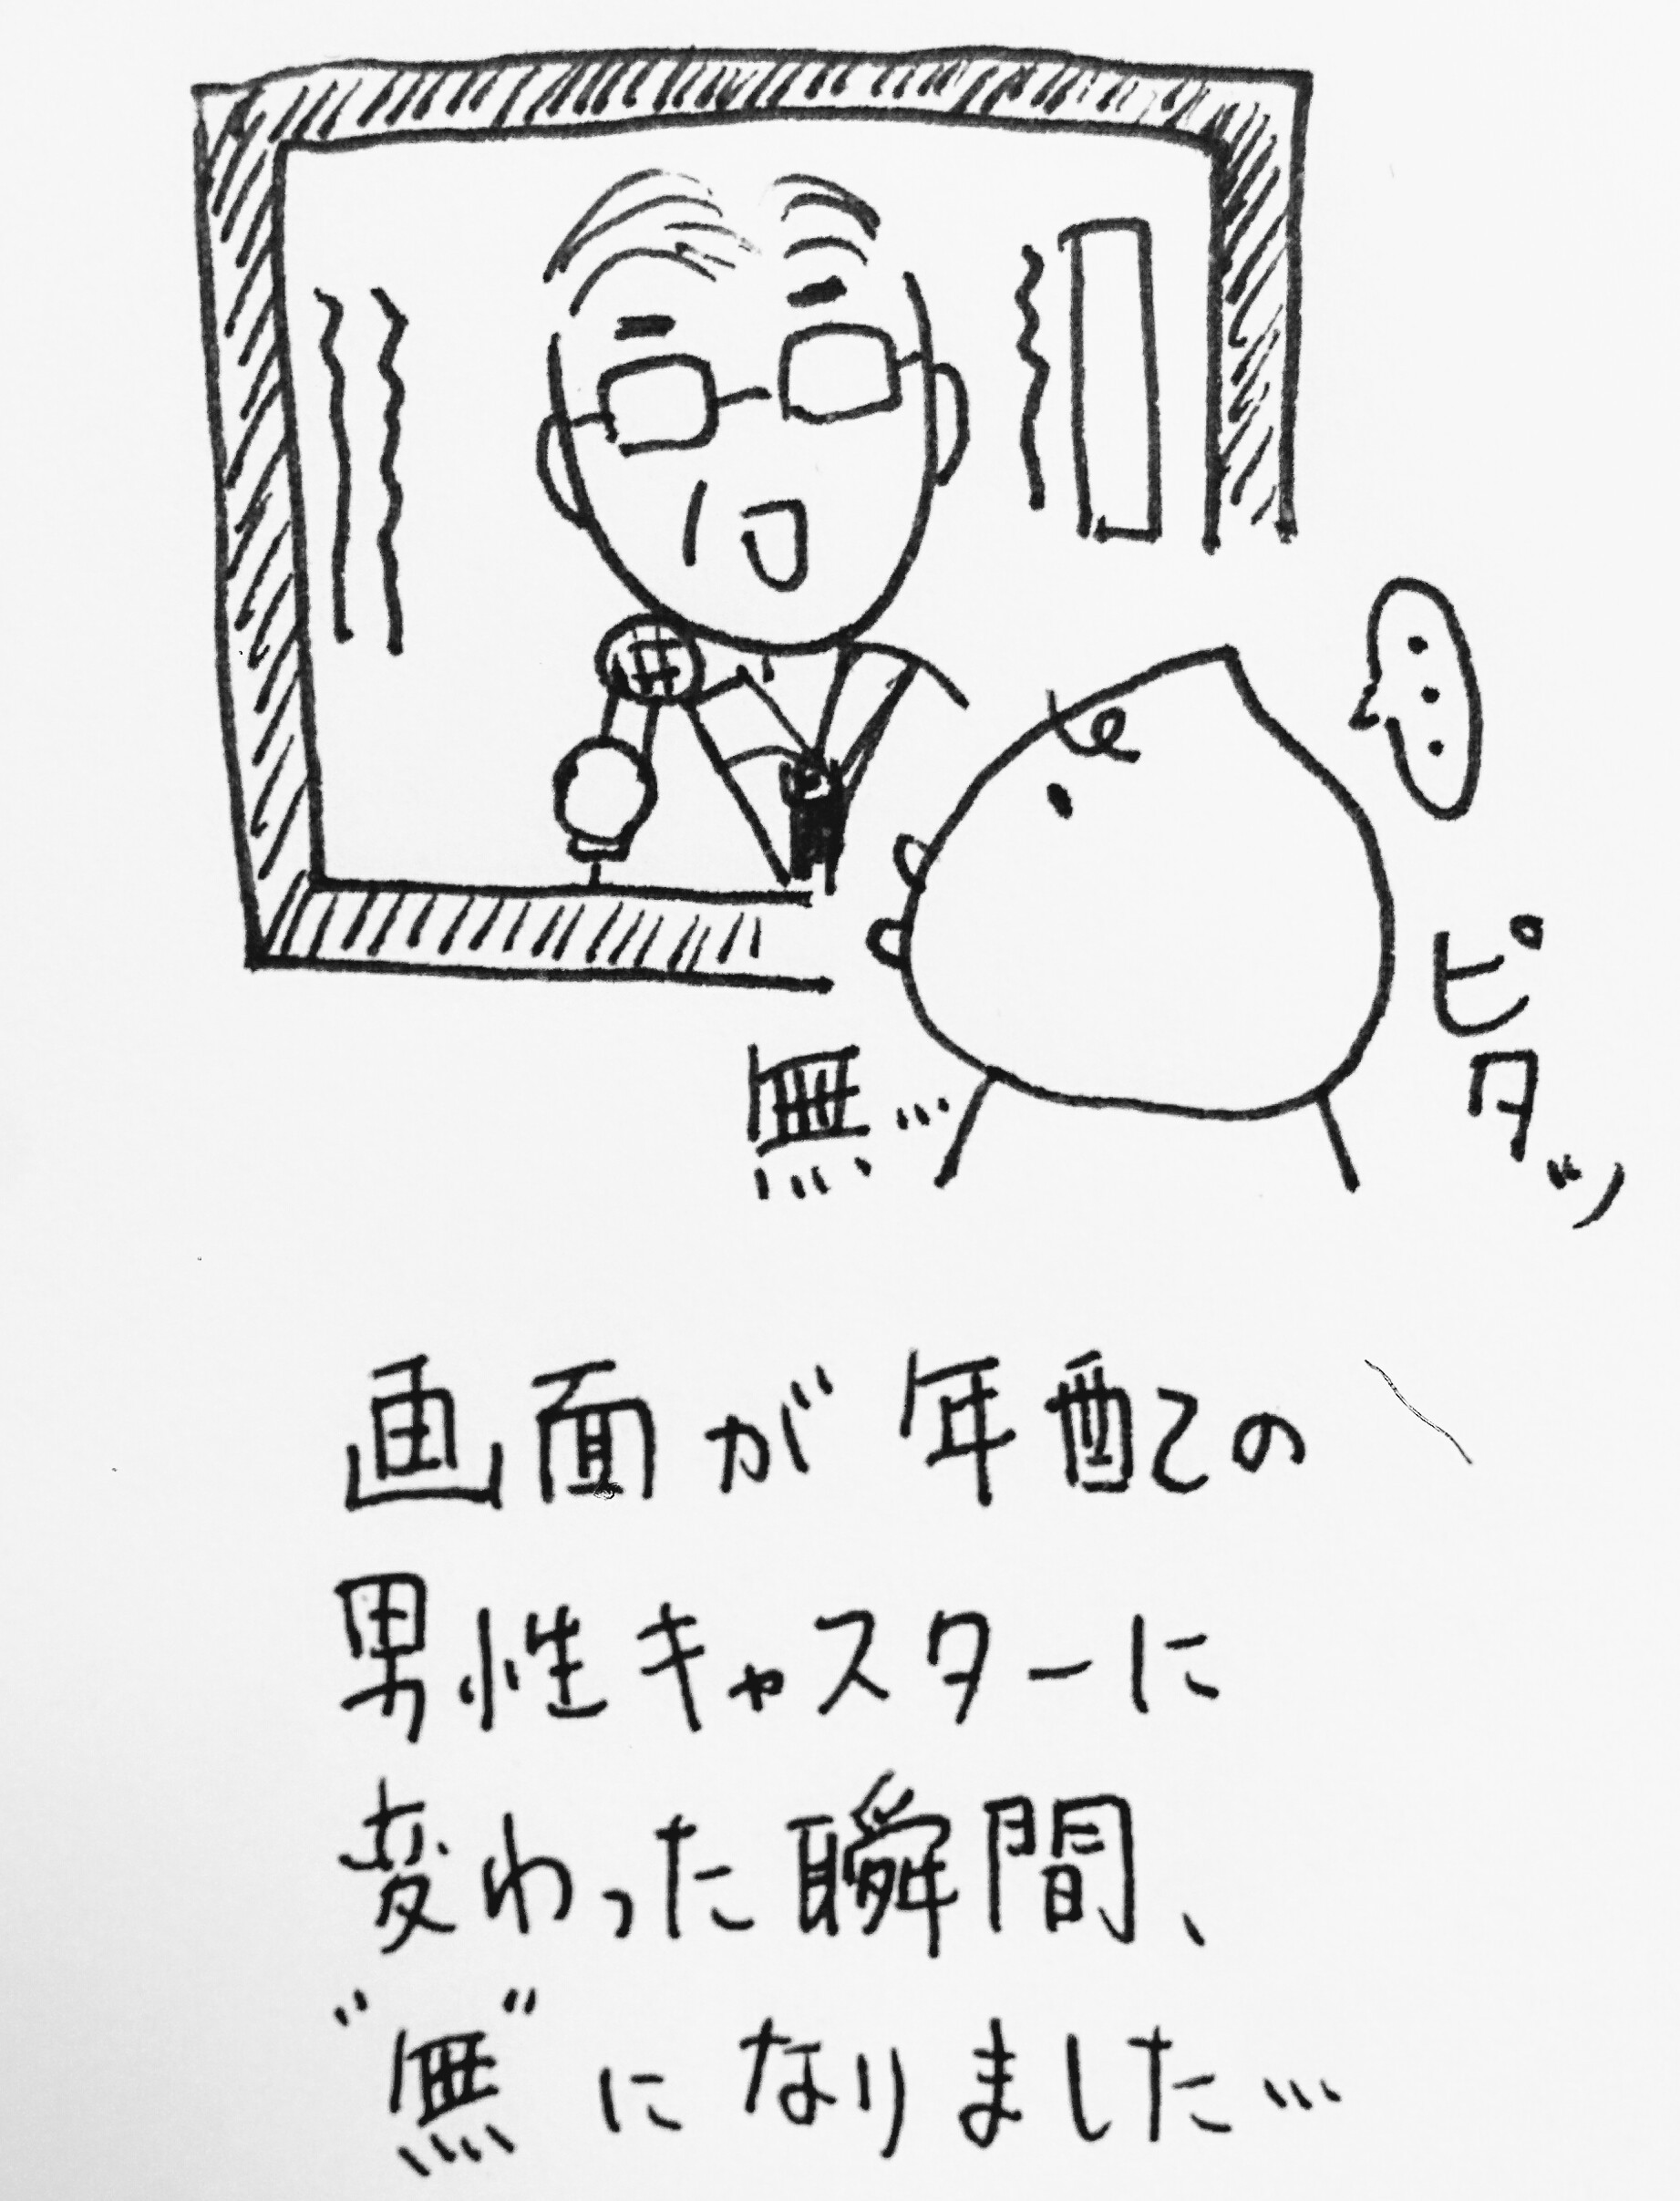 ピタッ
無…
画面が年配の
男性キャスターに
変わった瞬間、
"無"になりました…